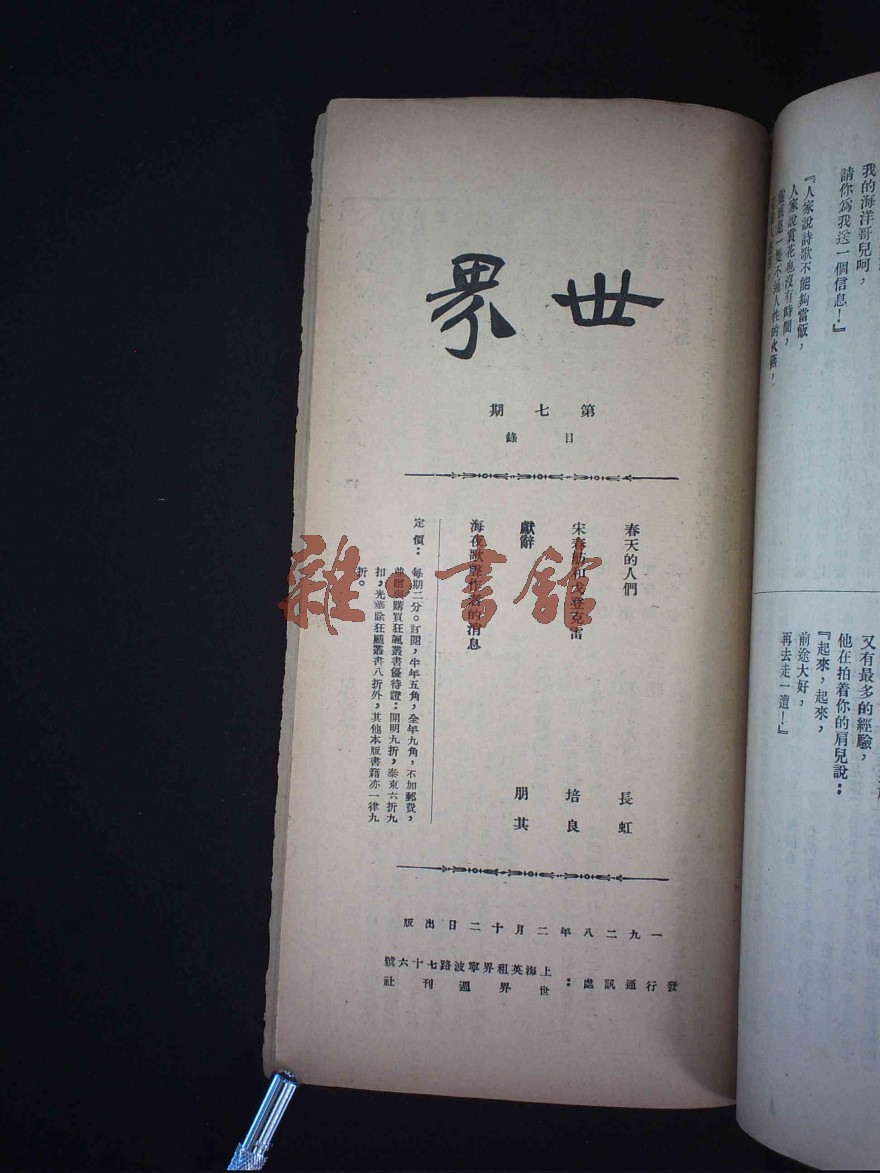 世界
第七期
目錄
春天的人們 長虹
宋春舫和戈登克雷 培良
獻辭 朋其
海夜歌聲作者的消息
定價：每期二分。訂閱，半年五角，全年九角，不加郵費，
並贈與購買狂飆叢書優待證：開明九折，泰東六折九
扣，光華除狂飆叢書八折外，其他本版書籍亦一律九
折。
一九二八年二月十二日出版
發行通訊處：上海英租界寧波路七十六號
世界週刊社
雜·書館
我的海洋哥兒呵，
請你爲我送一個信息！』
『人家說詩歌不能夠當飯，
人家說賞花也沒有時間，
一隻不通人性的火燕，
又有最多的經驗，
他在拍着你的肩兒說：
『起來，起來，
前途大好，
再去走一遭！』